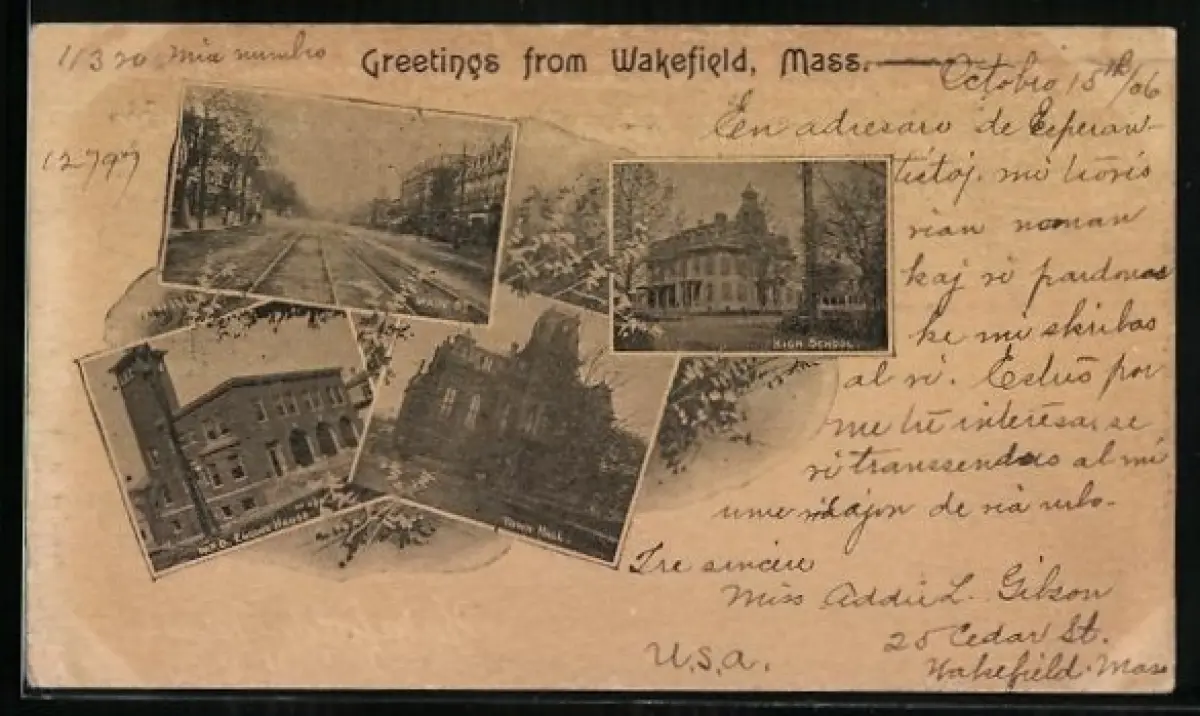 11320 mia numbro
Greetings from Wakefield, Mass.
Octobro 15th/06
12797
En adresaro de Esperan-
tistoj, mi trovis
vian noman
kaj vi pardonas
ke mi skribas
al vi. Estus por
me tre interesa, se
vi transsendus al mi
unu vidajon de via urbo.
Tre sincere
Miss Addie L. Gibson
25 Cedar St.
Wakefield. Mass
U.S.A.
MAIN ST.
HIGH SCHOOL.
TOWN HALL.